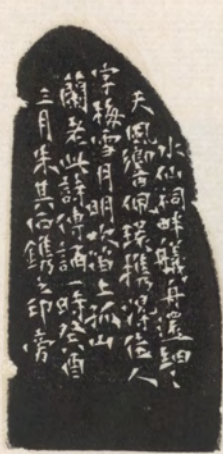 水仙祠畔艤舟還細々
天風響佩環攜得佳人
字梅雪月明吹笛上孤山
蘭老此詩傳誦一時癸酉
三月朱其石鐫之印旁